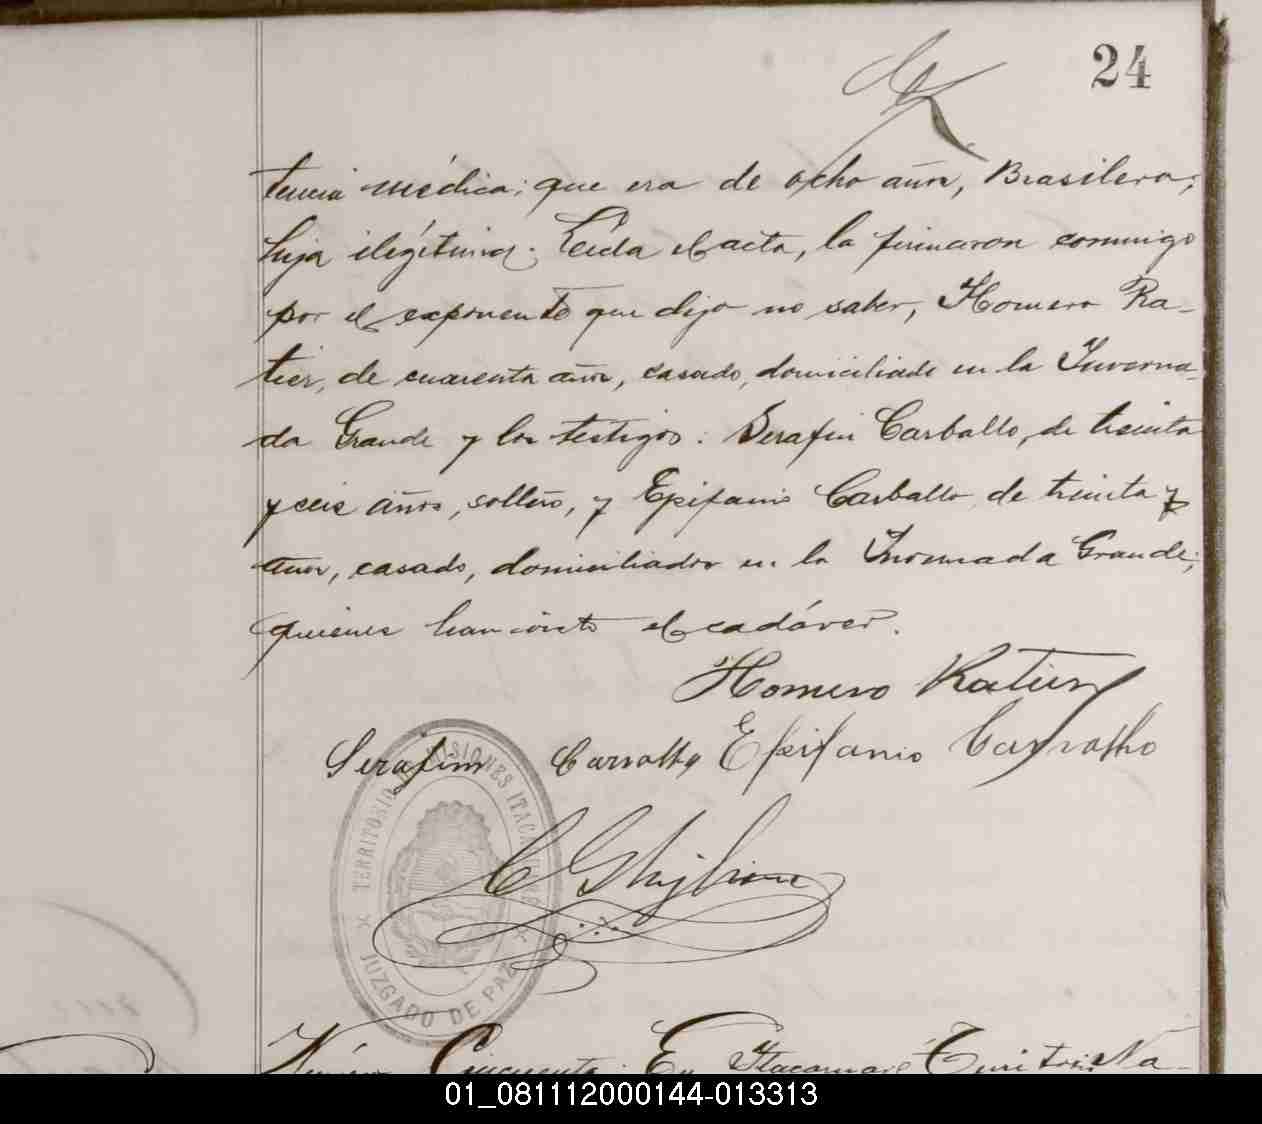 24
tencia médica; que era de ocho años, Brasilera,
hija ilegítima. Leída el acta, la firmaron conmigo
por el exponente que dijo no saber, Homero Ra-
tier, de cuarenta años, casado, domiciliado en la Inverna-
da Grande y los testigos: Serafin Carballo, de treinta
y seis años, soltero, y Epifanio Carballo de treinta y
años, casado, domiciliados en la Invernada Grande,
quienes han visto el cadáver.
Homero Ratier
Serafim Carvalho Epifanio Carvalho
TERRITORIO DE MISIONES ITACARUARÉ
JUZGADO DE PAZ
C Ghiglione
Número Cincuenta. En Itacaruaré Territorio Na-
01_081112000144-013313